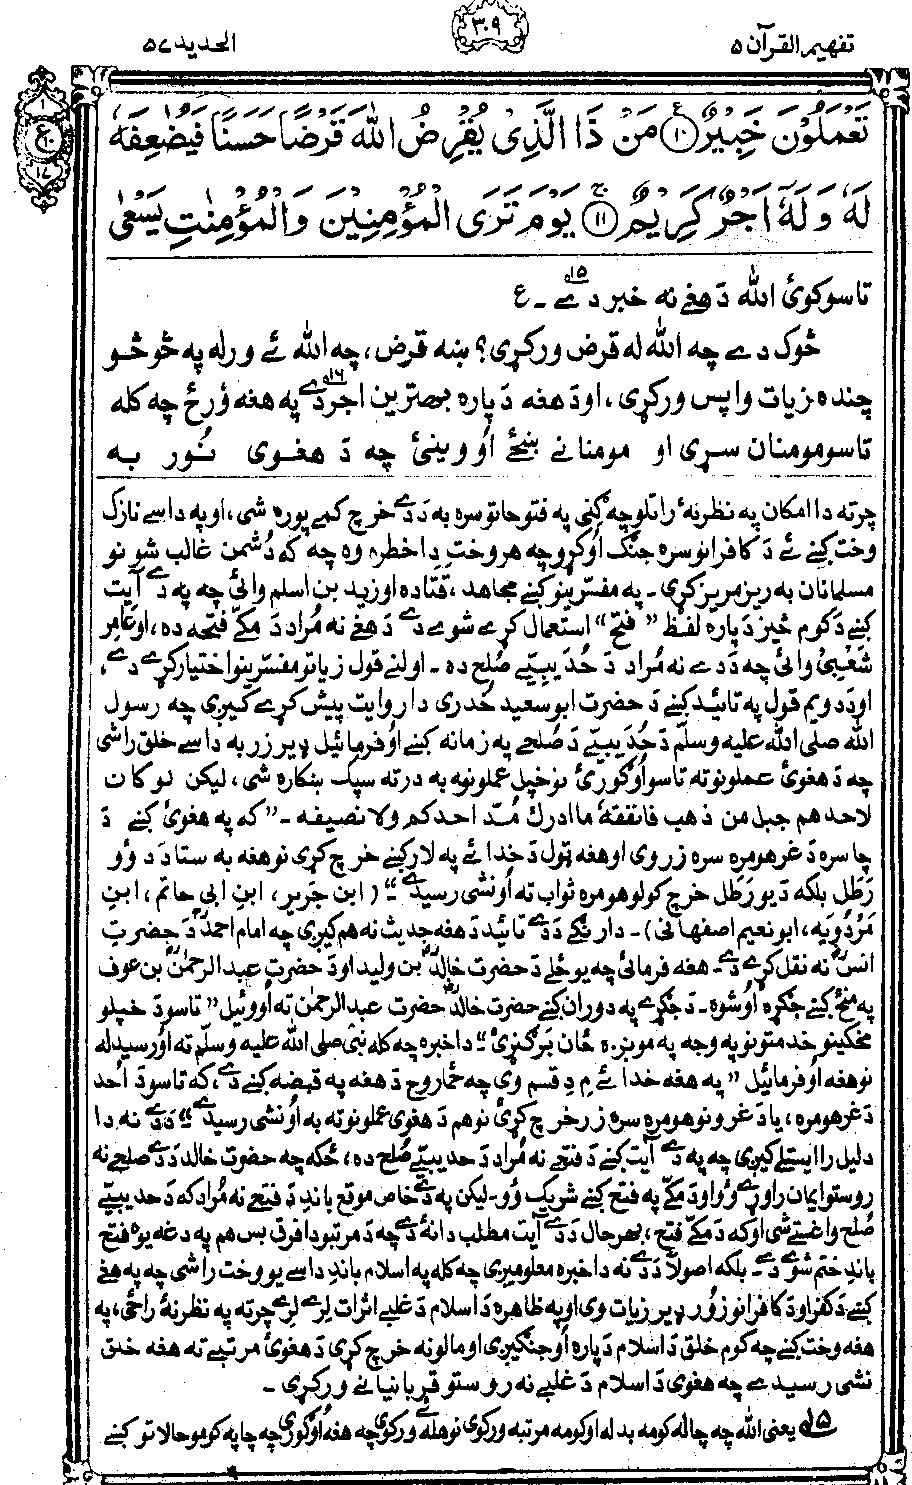 تفهيم القرآن ۵
۳۰۹
الحديد ۵۷
تَعْمَلُوْنَ خَبِيْرٌ ۱۰ مَنْ ذَا الَّذِىْ يُقْرِضُ اللّٰهَ قَرْضًا حَسَنًا فَيُضٰعِفَهٗ
لَهٗ وَلَهٗۤ اَجْرٌ كَرِيْمٌ ۱۱ يَوْمَ تَرَى الْمُؤْمِنِيْنَ وَالْمُؤْمِنٰتِ يَسْعٰى
تاسو كوئ الله دَ هغے نه خبر دے۱۵ ـ ع
څوك دے چه الله له قرض وركړى؟ ښه قرض، چه الله ئے ورله په څو څو
چنده زيات واپس وركړى، او دَ هغه دَ پاره بهترين اجر دے۱۶ په هغه ورځ چه كله
تاسو مومنان سړى او مومنانے ښځے اووينئ چه دَ هغوى نُور به
چرته دا امكان په نظر نهٔ راتلو چه كنى په فتوحاتو سره به دَ دے خرچ كمے پوره شى، او په داسے نازك
وخت كښے ئے دَ كافرانو سره جنګ اوكړو چه هر وخت دا خطره وه چه كه دُشمن غالب شو نو
مسلمانان به ريز مريز كړى ـ په مفسّرينو كښے مجاهد، قتاده او زيد بن اسلم وائى چه په دے آيت
كښے دَ كوم څيز دَ پاره لفظ "فتح" استعمال كړے شوے دے دَ هغے نه مُراد دَ مكّے فتحه ده، او عامر
شعبىؒ وائى چه دَ دے نه مُراد دَ حُديبيّے صُلح ده ـ اولنے قول زياتو مفسّرينو اختيار كړے دے،
او دَ دويم قول په تائيد كښے دَ حضرت ابو سعيد خُدرى دا روايت پيش كړے كيږى چه رسول
الله صلى الله عليه وسلّم دَ حُديبيّے دَ صُلحے په زمانه كښے اوفرمائيل ډير زر به داسے خلق راشى
چه دَ هغوئ عملونو ته تاسو اوګورئ نو خپل عملونه به درته سپك ښكاره شى، ليكن لو كان
لاحدهم جبل من ذهب فانفقهٗ ما ادرك مُدّ احدكم ولا نصيفه ـ "كه په هغوئ كښے دَ
چا سره دَ غر هومره سره زر وى او هغه ټول دَ خدائے په لار كښے خرچ كړى نو هغه به ستا دَ دوو
رَطل بلكه دَ يو رَطل خرچ كولو هومره ثواب ته اونشى رسيدے" (ابن جَرير، ابنِ ابى حاتم، ابنِ
مَردُويَه، ابو نعيم اصفهانى) ـ دارنګے دَ دے تائيد دَ هغه حديث نه هم كيږى چه امام احمدؒ دَ حضرت
انسؓ نه نقل كړے دے ـ هغه فرمائى چه يو ځلے دَ حضرت خالدؓ بن وليد او دَ حضرت عبد الرحمٰنؓ بن عوف
په منځ كښے جګړه اوشوه ـ دَ جګړے په دوران كښے حضرت خالدؓ حضرت عبد الرحمٰن ته اووئيل "تاسو دَ خپلو
مخكينو خدمتونو په وجه په مونږه ځان بَر ګنړئ" ـ دا خبره چه كله نبى صلى الله عليه وسلّم ته اورسيدله
نو هغه اوفرمائيل "په هغه خدائے مِ دِ قسم وى چه څما روح دَ هغه په قبضه كښے دے، كه تاسو دَ اُحد
دَ غر هومره، يا دَ غرونو هومره سره زر خرچ كړئ نو هم دَ هغوى عملونو ته به اونشى رسيدے" دَ دے نه دا
دليل را ايستلے كيږى چه په دے آيت كښے دَ فتحے نه مُراد دَ حديبيّے صُلح ده، ځكه چه حضرت خالد دَ دے صلحے نه
روستو ايمان راوړے وو او دَ مكّے په فتح كښے شريك وو ـ ليكن په دے خاص موقع باندِ دَ فتحے نه مُراد كه دَ حديبيّے
صُلح واغستے شى او كه دَ مكّے فتح، بهر حال دَ دے آيت مطلب دا نهٔ دے چه دَ مرتبو دا فرق بس هم په دغه يوه فتح
باندِ ختم شوے دے ـ بلكه اصولاً دَ دے نه دا خبره معلوميږى چه كله په اسلام باندِ داسے يو وخت راشى چه په هغے
كښے دَ كفر او دَ كافرانو زور ډير زيات وى او په ظاهره دَ اسلام دَ غلبے اثرات لرے لرے چرته په نظر نهٔ راځى، په
هغه وخت كښے چه كوم خلق دَ اسلام دَ پاره اوجنګيږى او مالونه خرچ كړى دَ هغوئ مرتبے ته هغه خلق
نشى رسيدے چه هغوى دَ اسلام دَ غلبے نه روستو قربانيانے وركړى ـ
۱۵ يعنى الله چه چاله كومه بدله او كومه مرتبه وركوى نو هله ئے وركوى چه هغه اوګورى چه چا په كومو حالاتو كښے